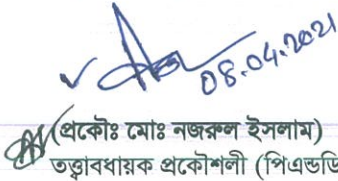 08.04.2021
(প্রকৌঃ মোঃ নজরুল ইসলাম)
তত্ত্বাবধায়ক প্রকৌশলী (পিএন্ডডি